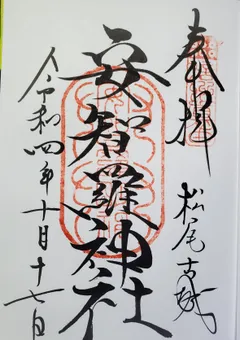 奉拝
松尾古城
安智羅神社
令和四年十月十七日